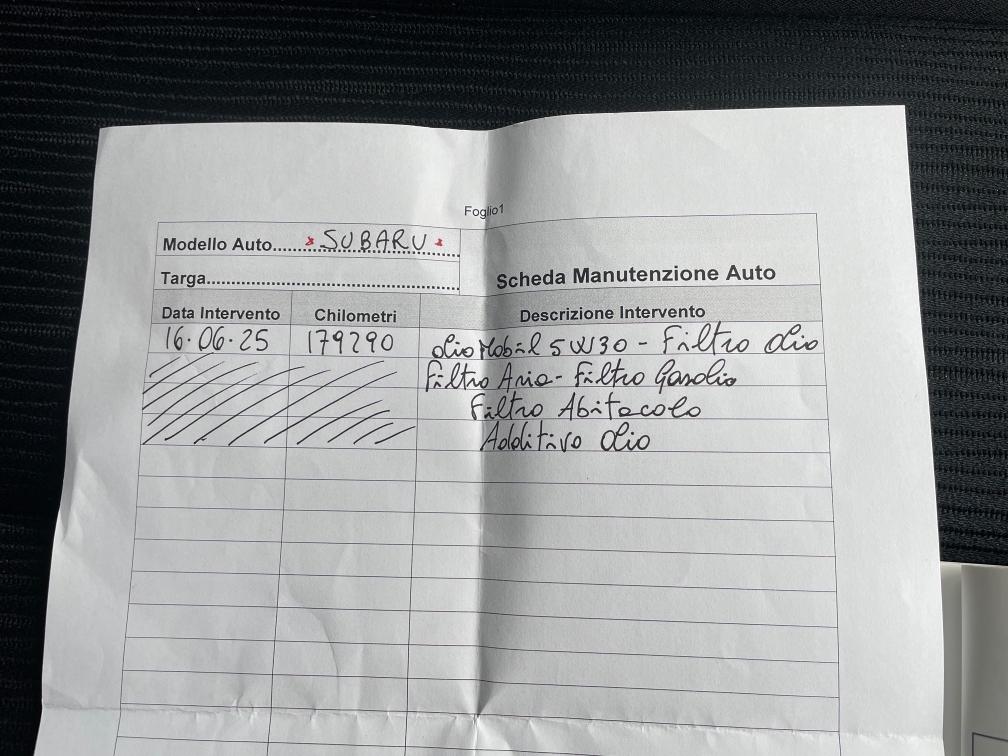 Foglio1
Modello Auto...... * SUBARU * ..
Targa..................................................
Scheda Manutenzione Auto
Data Intervento Chilometri Descrizione Intervento
16.06.25 179290 Olio Mobil 5W30 - Filtro Olio
Filtro Aria - Filtro Gasolio
Filtro Abitacolo
Additivo Olio